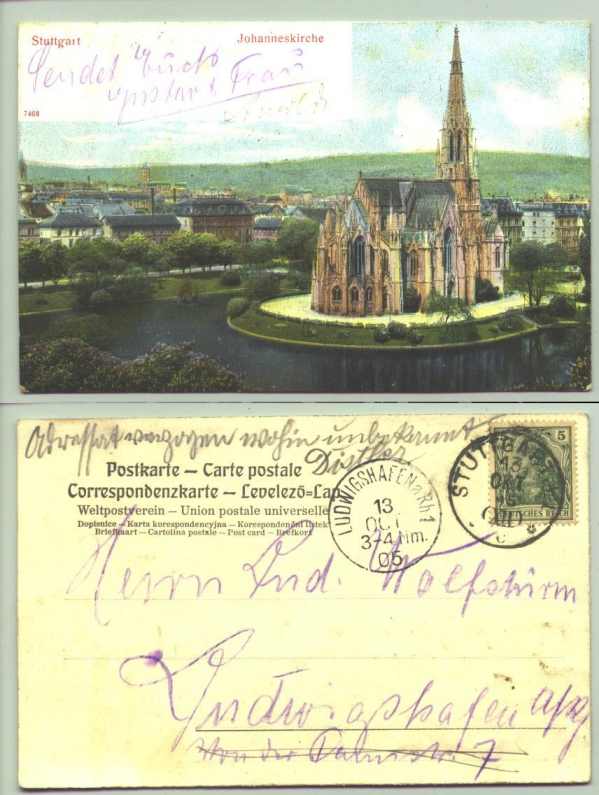 Stuttgart
Johanneskirche
Sendet Euch
Frau
7408
Adressat verzogen wohin unbekannt
Distler
Postkarte — Carte postale
Correspondenzkarte — Levelező=Lap
Weltpostverein — Union postale universelle
Dopisnice — Karta korespondencyjna — Korespondenční lístek
Briefkaart — Cartolina postale — Post card — Brefkort
LUDWIGSHAFEN a. Rh. 1
13
OCT
3-4 Nm.
05
STUTTGART
13
OKT
5
DEUTSCHES REICH
Herrn Lud. Wolfsturm
Ludwigshafen a/Rh
Von der
7